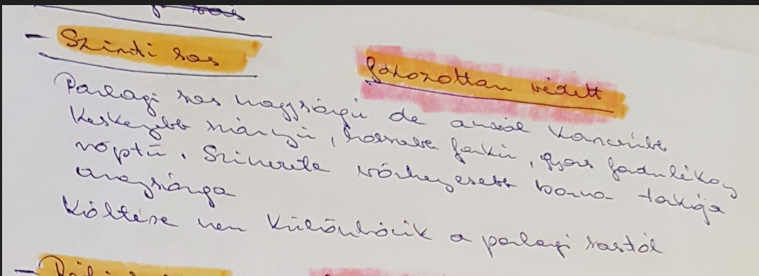 - Szirti sas
fokozottan védett
Parlagi sas nagyságú de annál karcsúbb
Keskenyebb szárnyú, hosszabb farkú, gyors
röptű. Színezete barna
aranysárga
Költése nem különbözik a parlagi sastól